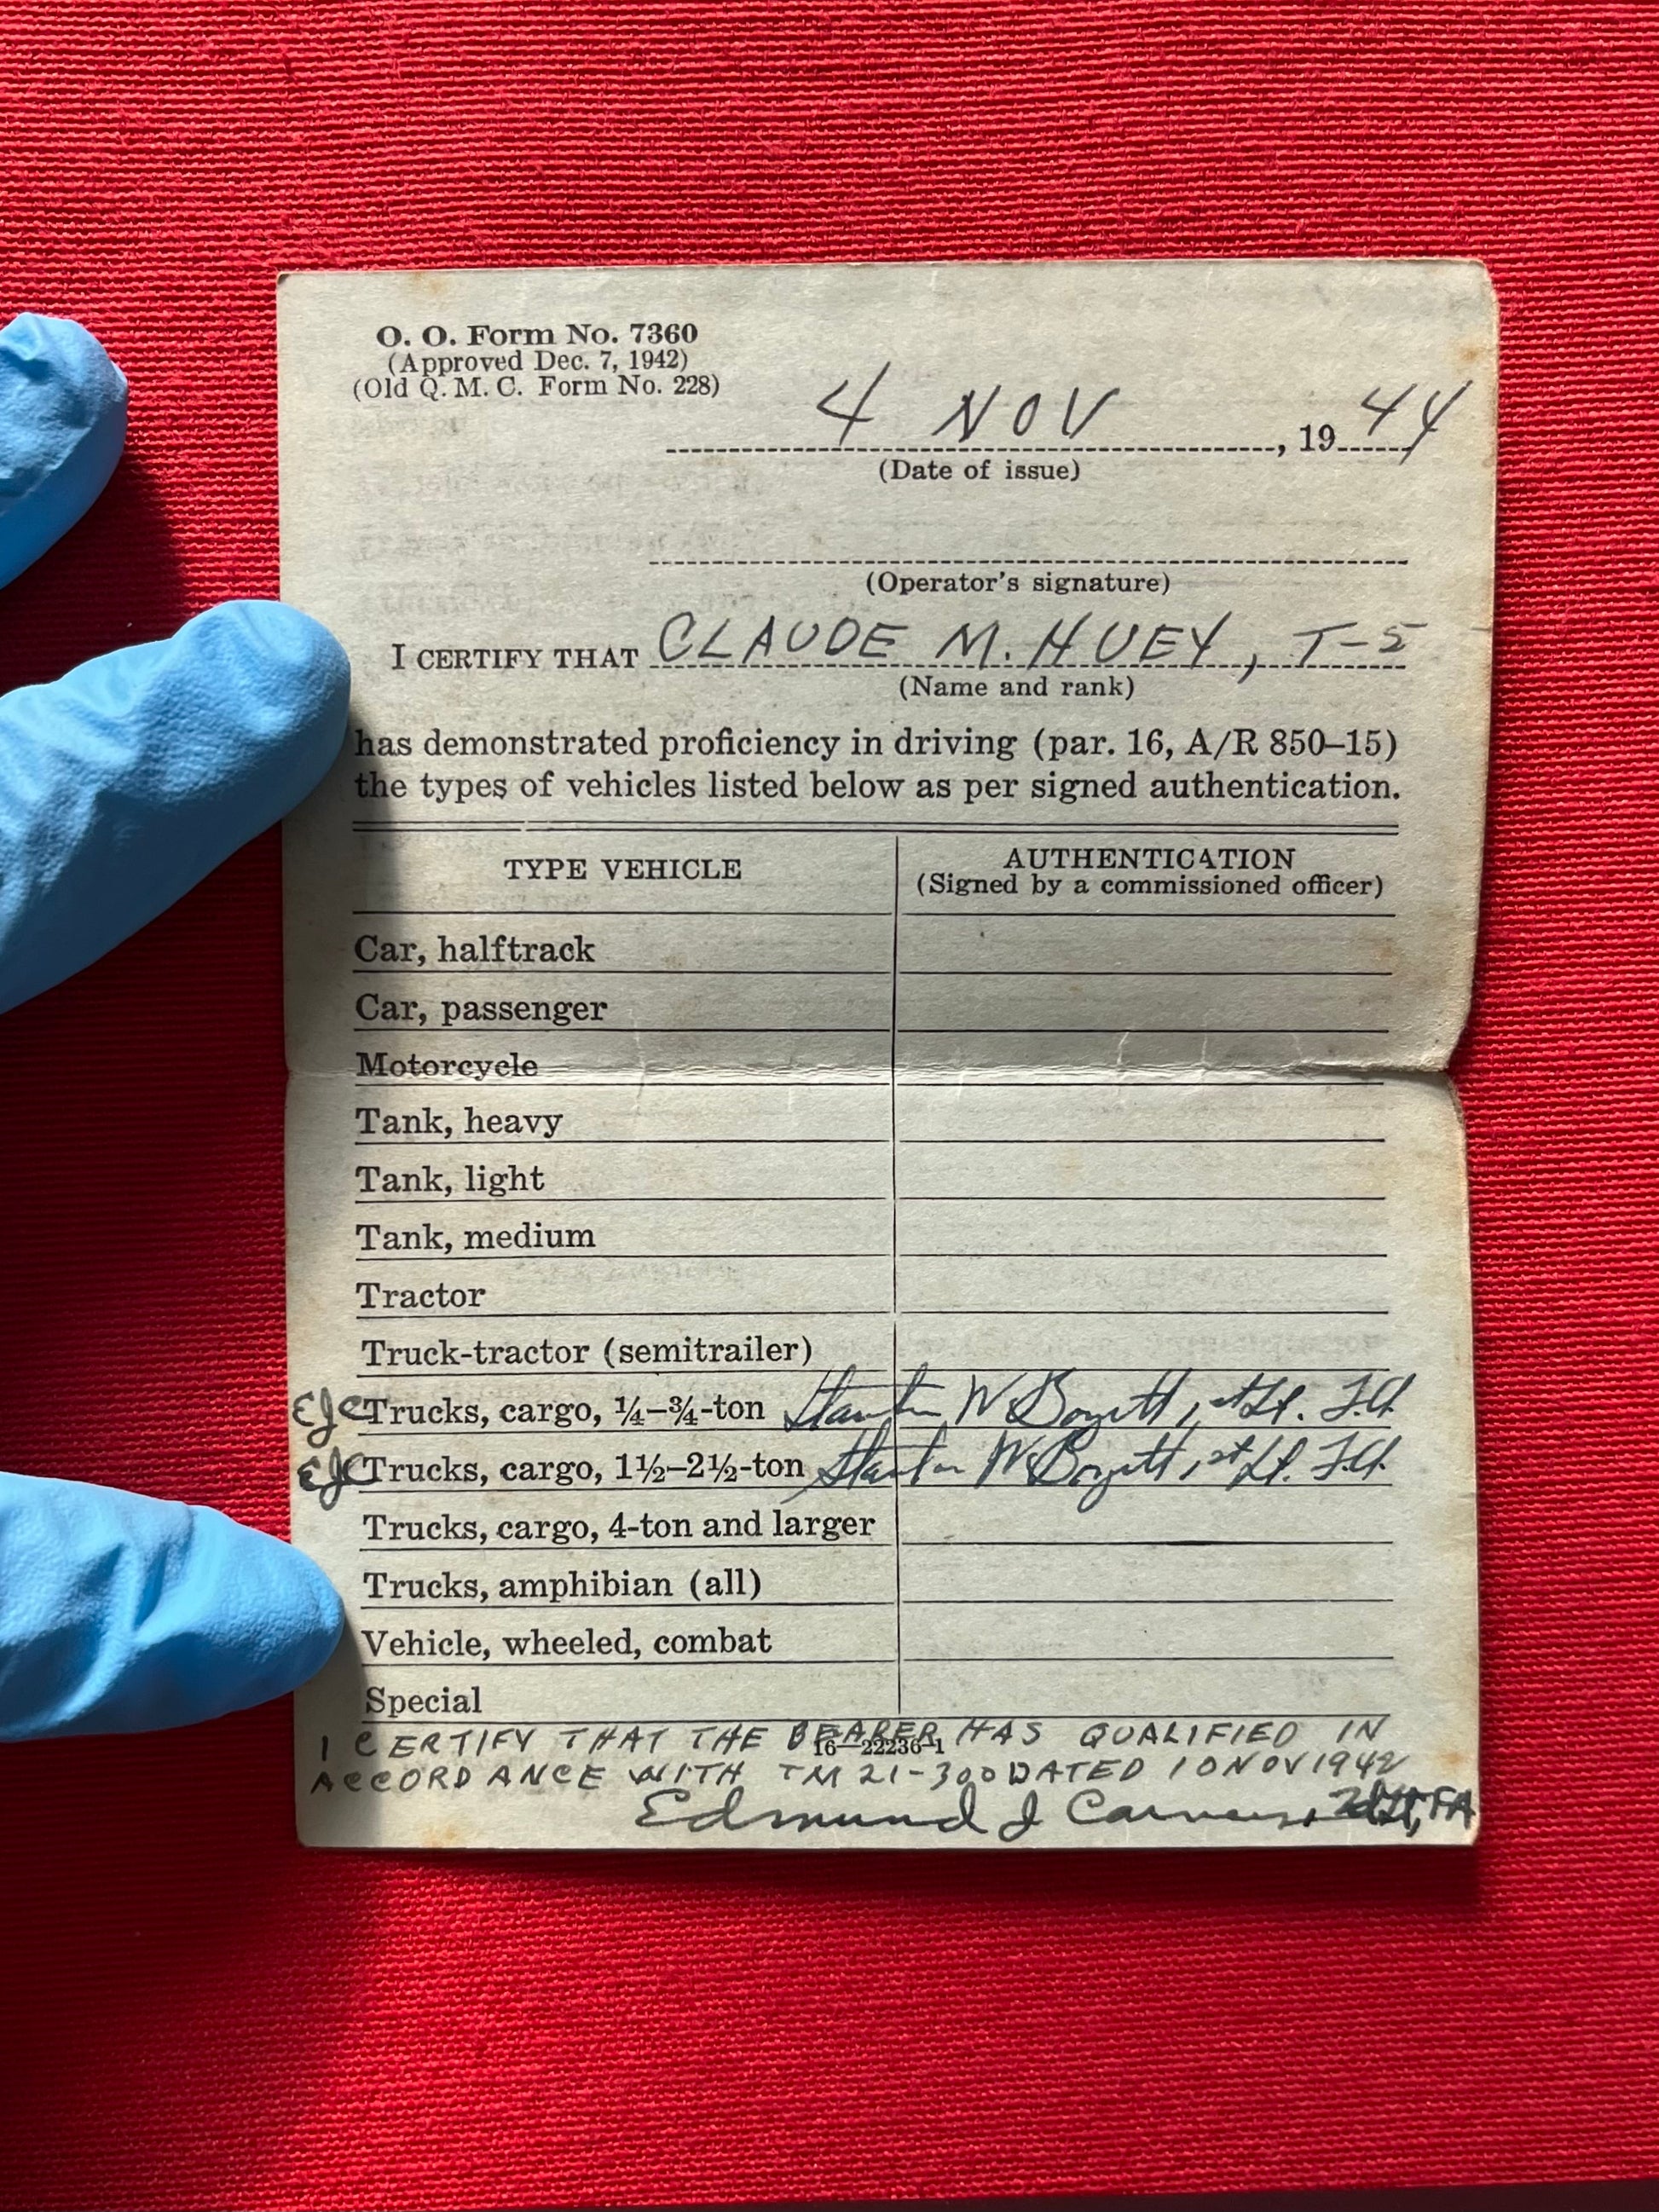 O. O. Form No. 7360
(Approved Dec. 7, 1942)
(Old Q. M. C. Form No. 228)
4 NOV, 19 44
(Date of issue)
(Operator's signature)
I CERTIFY THAT CLAUDE M. HUEY, T-5
(Name and rank)
has demonstrated proficiency in driving (par. 16, A/R 850–15)
the types of vehicles listed below as per signed authentication.
TYPE VEHICLE AUTHENTICATION
(Signed by a commissioned officer)
Car, halftrack
Car, passenger
Motorcycle
Tank, heavy
Tank, light
Tank, medium
Tractor
Truck-tractor (semitrailer)
EJC Trucks, cargo, ¼–¾-ton W 1st Lt. F.A.
EJC Trucks, cargo, 1½–2½-ton W 1st Lt. F.A.
Trucks, cargo, 4-ton and larger
Trucks, amphibian (all)
Vehicle, wheeled, combat
Special
I CERTIFY THAT THE BEARER HAS QUALIFIED IN
16—22236-1
ACCORDANCE WITH TM 21-300 DATED 10 NOV 1942
Edmund J 2d Lt, FA